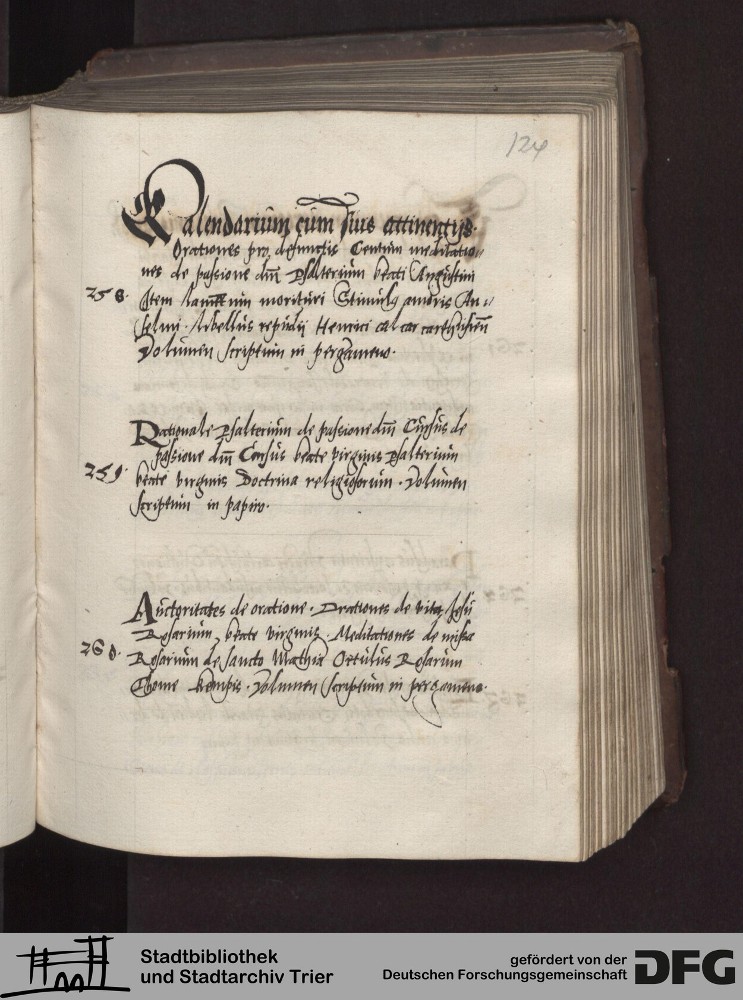 124
Kalendarium cum suis attinentijs.
Orationes pro defunctis Centum meditatio„
nes de passione dnī Psalterium beati Augustini
258. Item morituri Stimulꝰ amoris An„
selmi. Libellus repudij Henrici calcar carthusien̄
Volumen scriptum in pergameno.
Rationale Psalterium de passione dnī Cursus de
passione dnī Cursus beate virginis Psalterium
259. beate virginis Doctrina religiosorum. Volumen
scriptum in papiro.
Auctoritates de oratione. Orationes de vita Jesu
Rosarium beate virginis. Meditationes de missa
260. Rosarium de sancto Mathia Ortulus Rosarum
Thome Kempis. Volumen scriptum in pergameno.
Stadtbibliothek
und Stadtarchiv Trier
gefördert von der
Deutschen Forschungsgemeinschaft
DFG